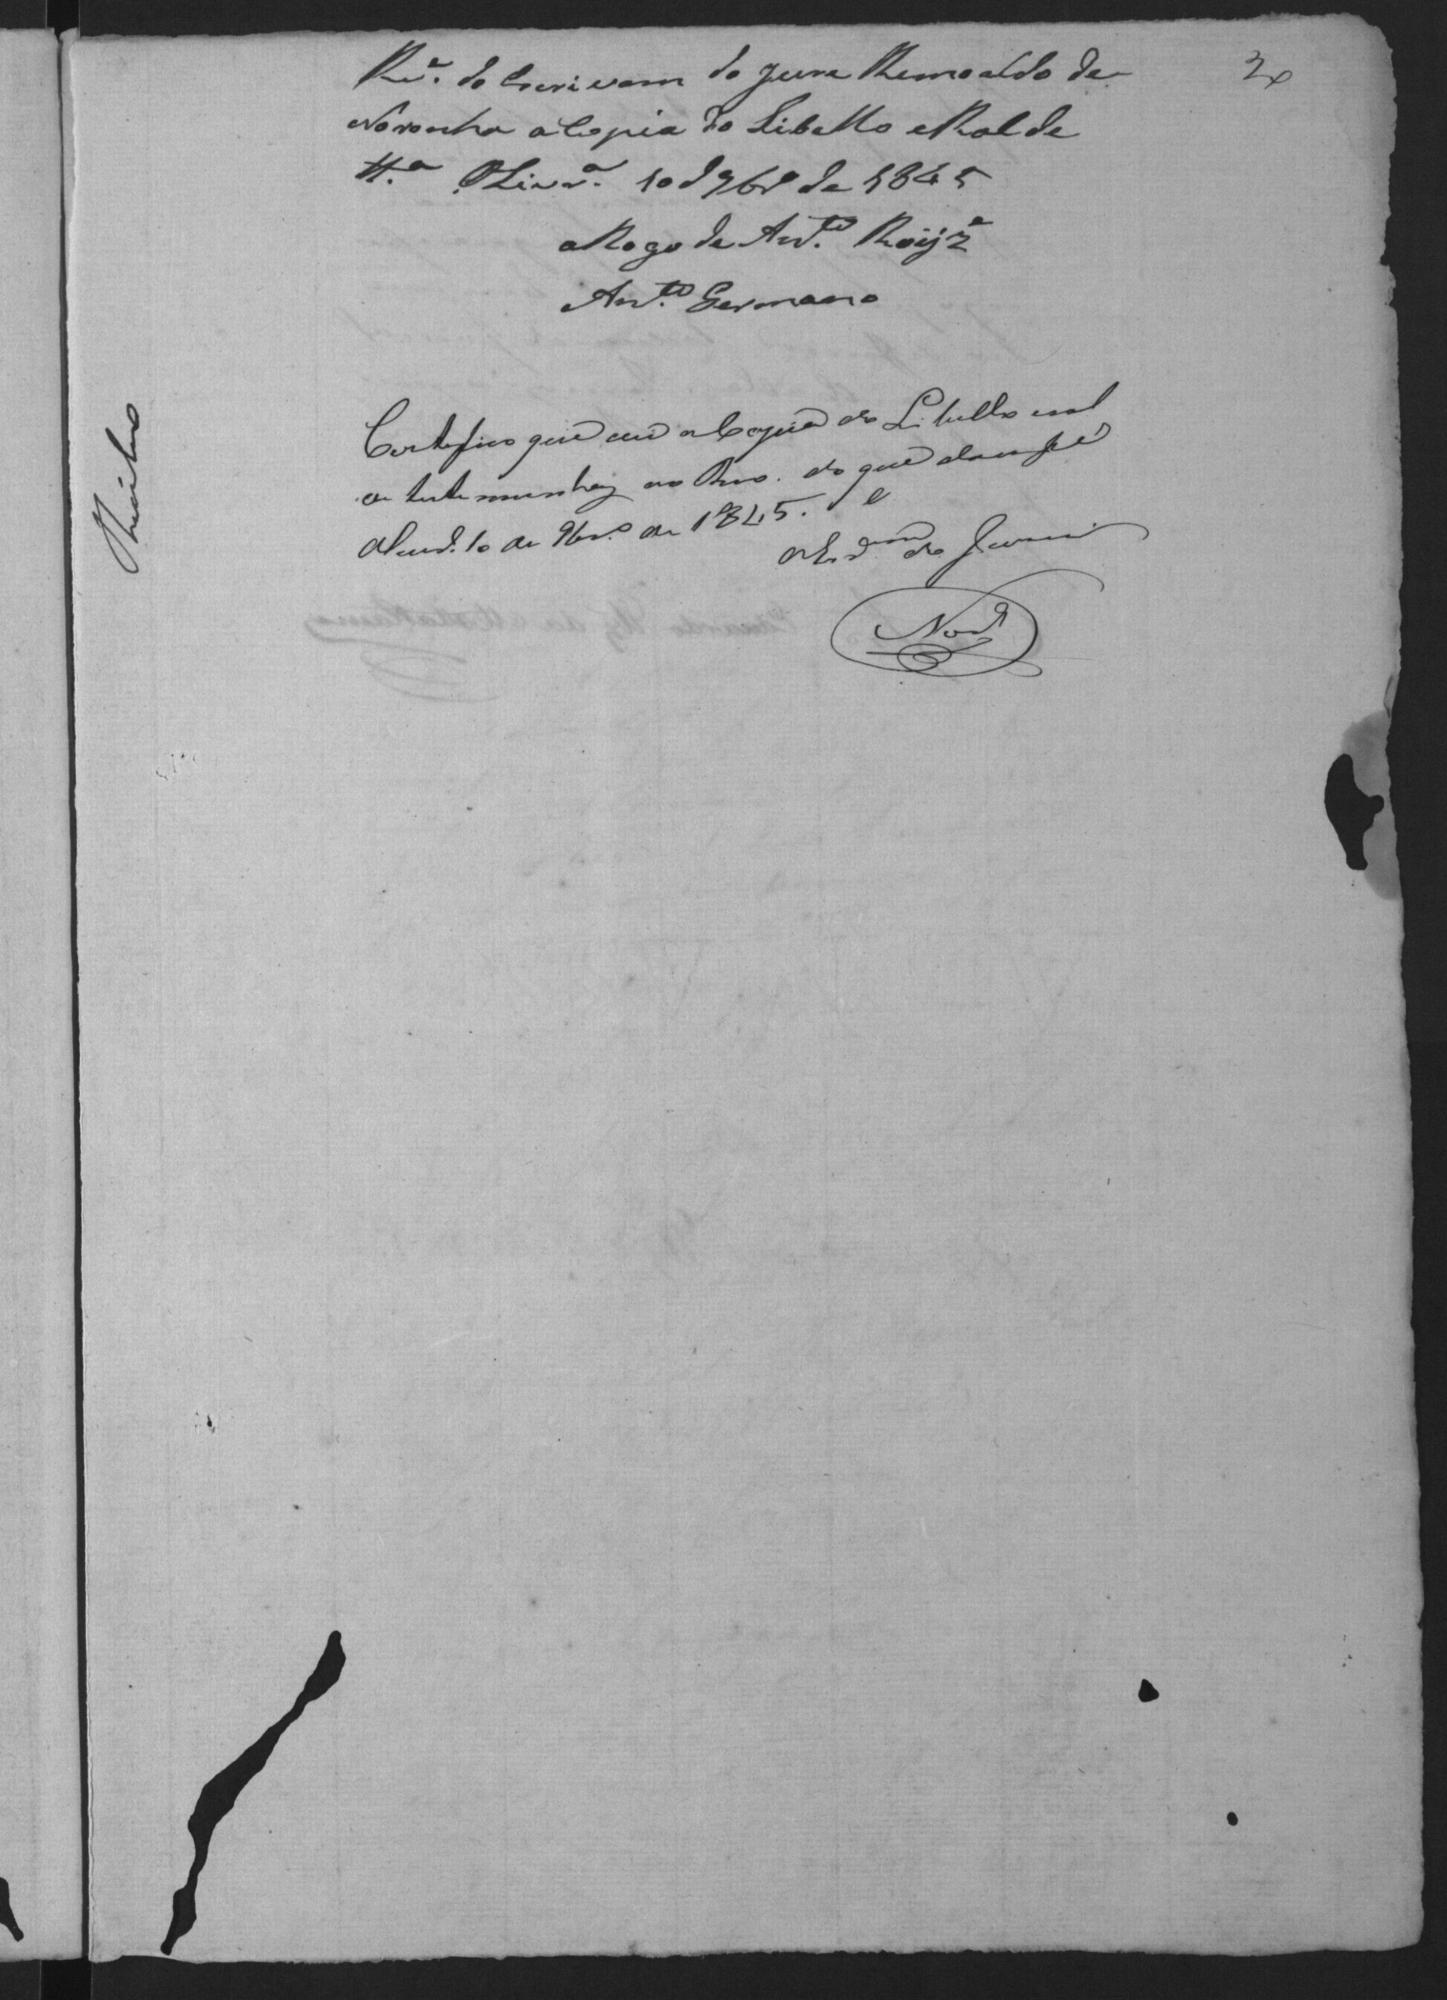 Rc.ª do Escrivam do jure Remoaldo de
Noronha a Copia do Libello e Rol de
tt.ª 10 d 9br.º de 1845
a Rogo de Ant.º Roiz
Ant.º Germano
Certefico que dei a Copia do Libello e rol
de testemunhaz ao Reo. do que dou fé
10 de 9br.º de 1845. e
do Jurii
Nor.ª